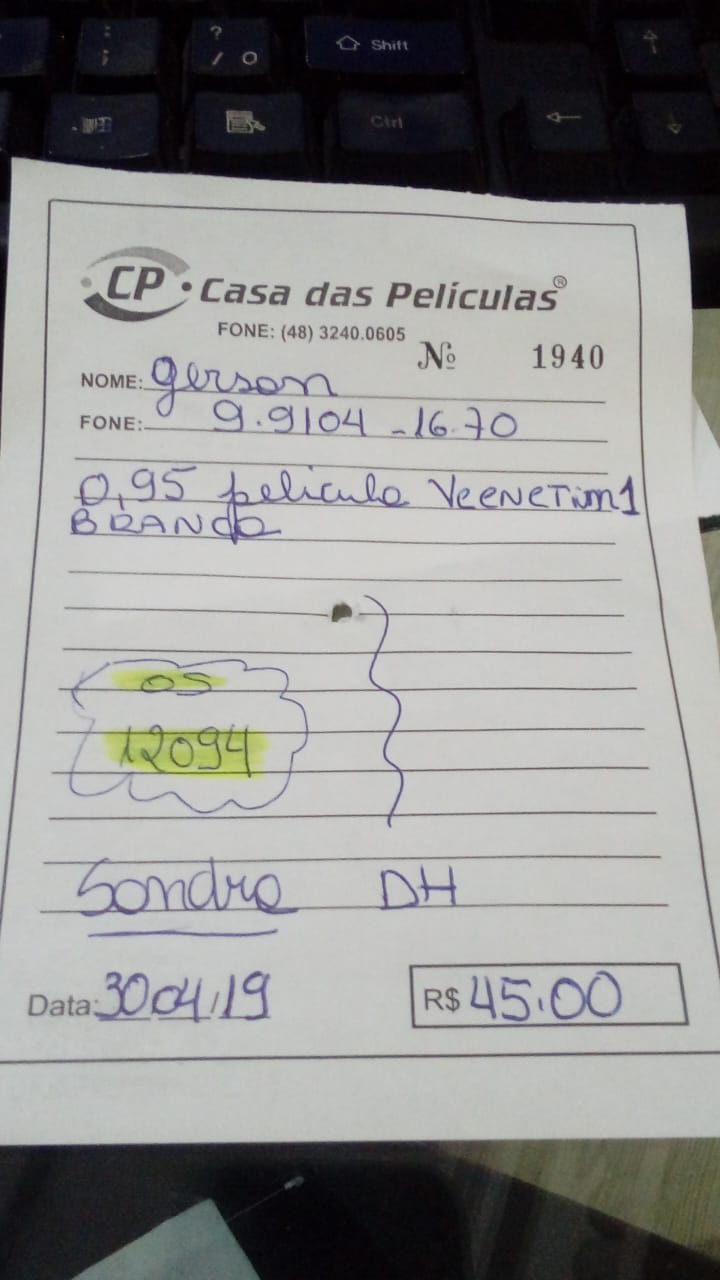 ?
/
;
:
Shift
Ctrl
CP • Casa das Películas®
FONE: (48) 3240.0605
Nº 1940
NOME: Gerson
FONE: 9.9104-16.70
0,95 pelicula
BRANCO
OS
12094
Sandra DH
Data: 30/04/19
R$ 45.00